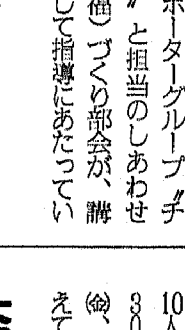 ポーターグループ〝チ
〟と担当のしあわせ
福)づくり部会が、講
して指導にあたってい
10人
30
㈮、
えて